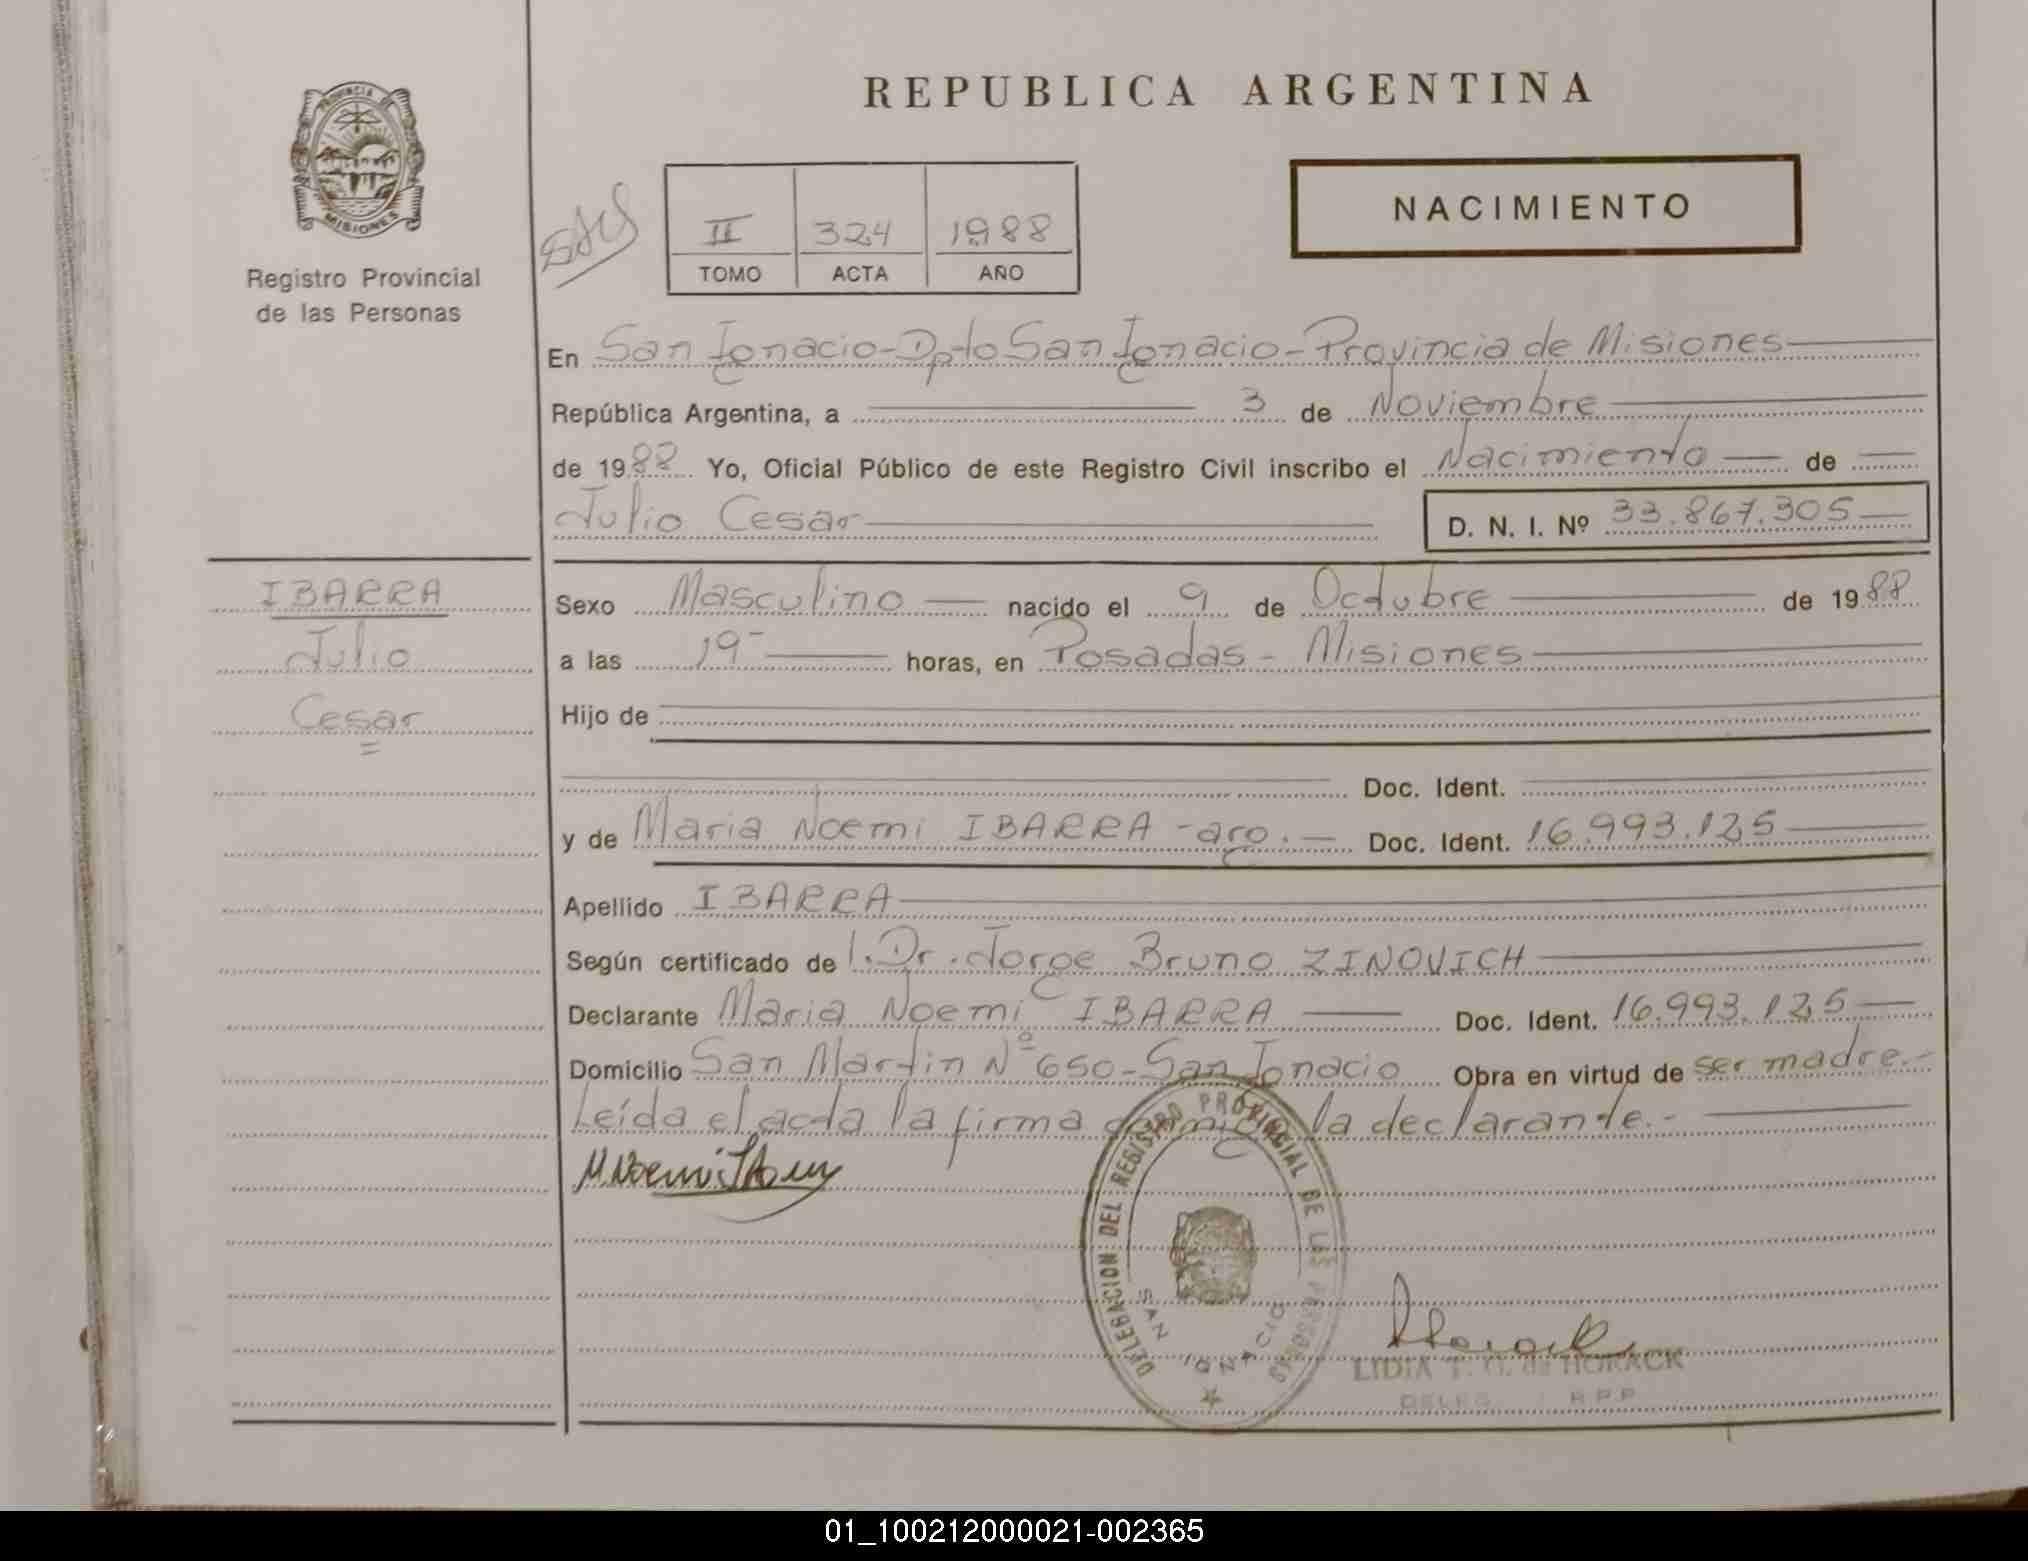 REPUBLICA ARGENTINA
PROVINCIA DE
MISIONES
Registro Provincial
de las Personas
II 324 1988
TOMO ACTA AÑO
NACIMIENTO
En San Ignacio-Dpto San Ignacio-Provincia de Misiones
República Argentina, a 3 de Noviembre
de 1988 Yo, Oficial Público de este Registro Civil inscribo el Nacimiento de
Julio Cesar D. N. I. Nº 33.867.305
IBARRA
Julio
Cesar
Sexo Masculino nacido el 9 de Octubre de 1988
a las 19 horas, en Posadas - Misiones
Hijo de
Doc. Ident.
y de Maria Noemi IBARRA - arg. Doc. Ident. 16.993.125
Apellido IBARRA
Según certificado de l. Dr. Jorge Bruno ZINOVICH
Declarante Maria Noemi IBARRA Doc. Ident. 16.993.125
Domicilio San Martin Nº 650-San Ignacio Obra en virtud de ser madre.-
Leída el acta la firma conmigo la declarante.-
M. Noemi Ibarra
DELEGACION DEL REGISTRO PROVINCIAL DE LAS PERSONAS
SAN IGNACIO
LIDIA T. G. de HORACK
DELEG. R.P.P.
01_100212000021-002365